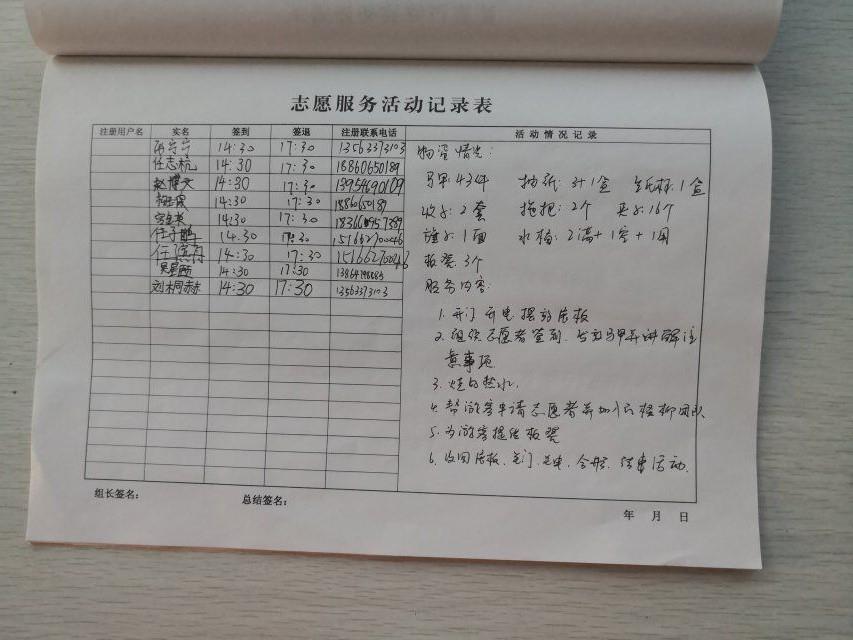 志愿服务活动记录表
注册用户名 实名 签到 签退 注册联系电话 活动情况记录
14:30 17:30 13563373103
任志杭 14:30 17:30 18860650189
赵博文 14:30 17:30 13954690109
14:30 17:30 18860650189
14:30 17:30
任子鹏 14:30 17:30 15166270046
14:30 17:30 15166270046
14:30 17:30
刘桐赫 14:30 17:30 13563373103
物资情况:
马甲:43件 抽纸:3+1盒 纸杯:1盒
2套 拖把:2个 夹子:16个
旗子:1面 水桶:2满+1空+1用
板凳:3个
服务内容:
1. 开门 开电 摆放展板
2. 组织志愿者签到, 分发马甲并讲解注
意事项
3. 烧的热水.
4. 帮游客申请志愿者并加入红柳团队
5. 为游客提供板凳
6. 收回展板、关门、关电、合影、结束活动.
组长签名: 总结签名:
年 月 日